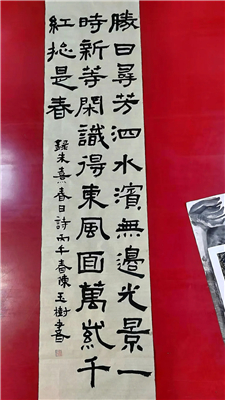 勝日尋芳泗水濱無邊光景一
時新等閑識得東風面萬紫千
紅捴是春
録朱熹春日詩丙午春陳玉樹書